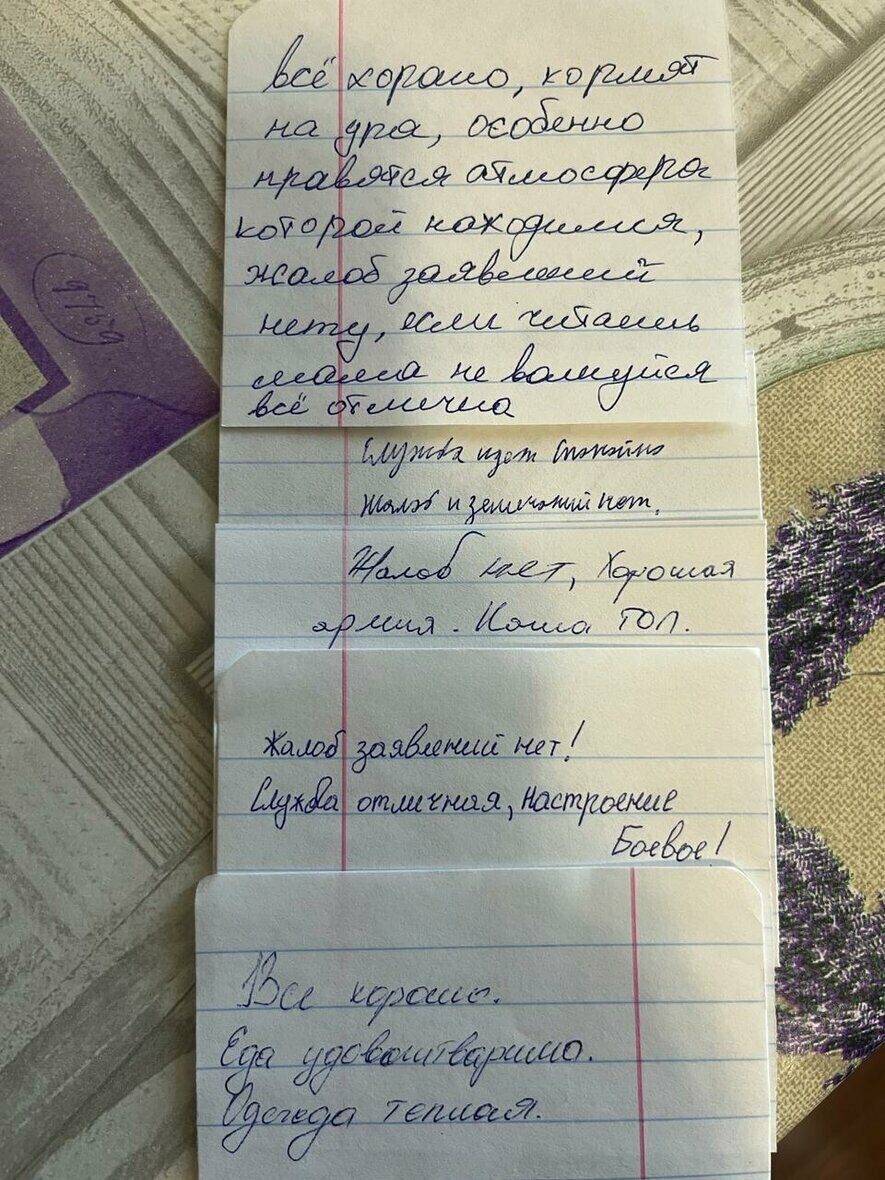 всё хорашо, кормят
на ура, особенно
нравятся атмосфера
которой находимся,
жалоб заявлений
нету, если читаешь
мама не волнуйся
всё отлична
Служба идет спокойно
Жалоб и замечаний нет.
Жалоб нет, Хорошая
армия. Каша ТОП.
Жалоб заявлений нет!
Служба отличная, настроение
Боевое!
Все хорошо.
Еда
Одежда теплая.